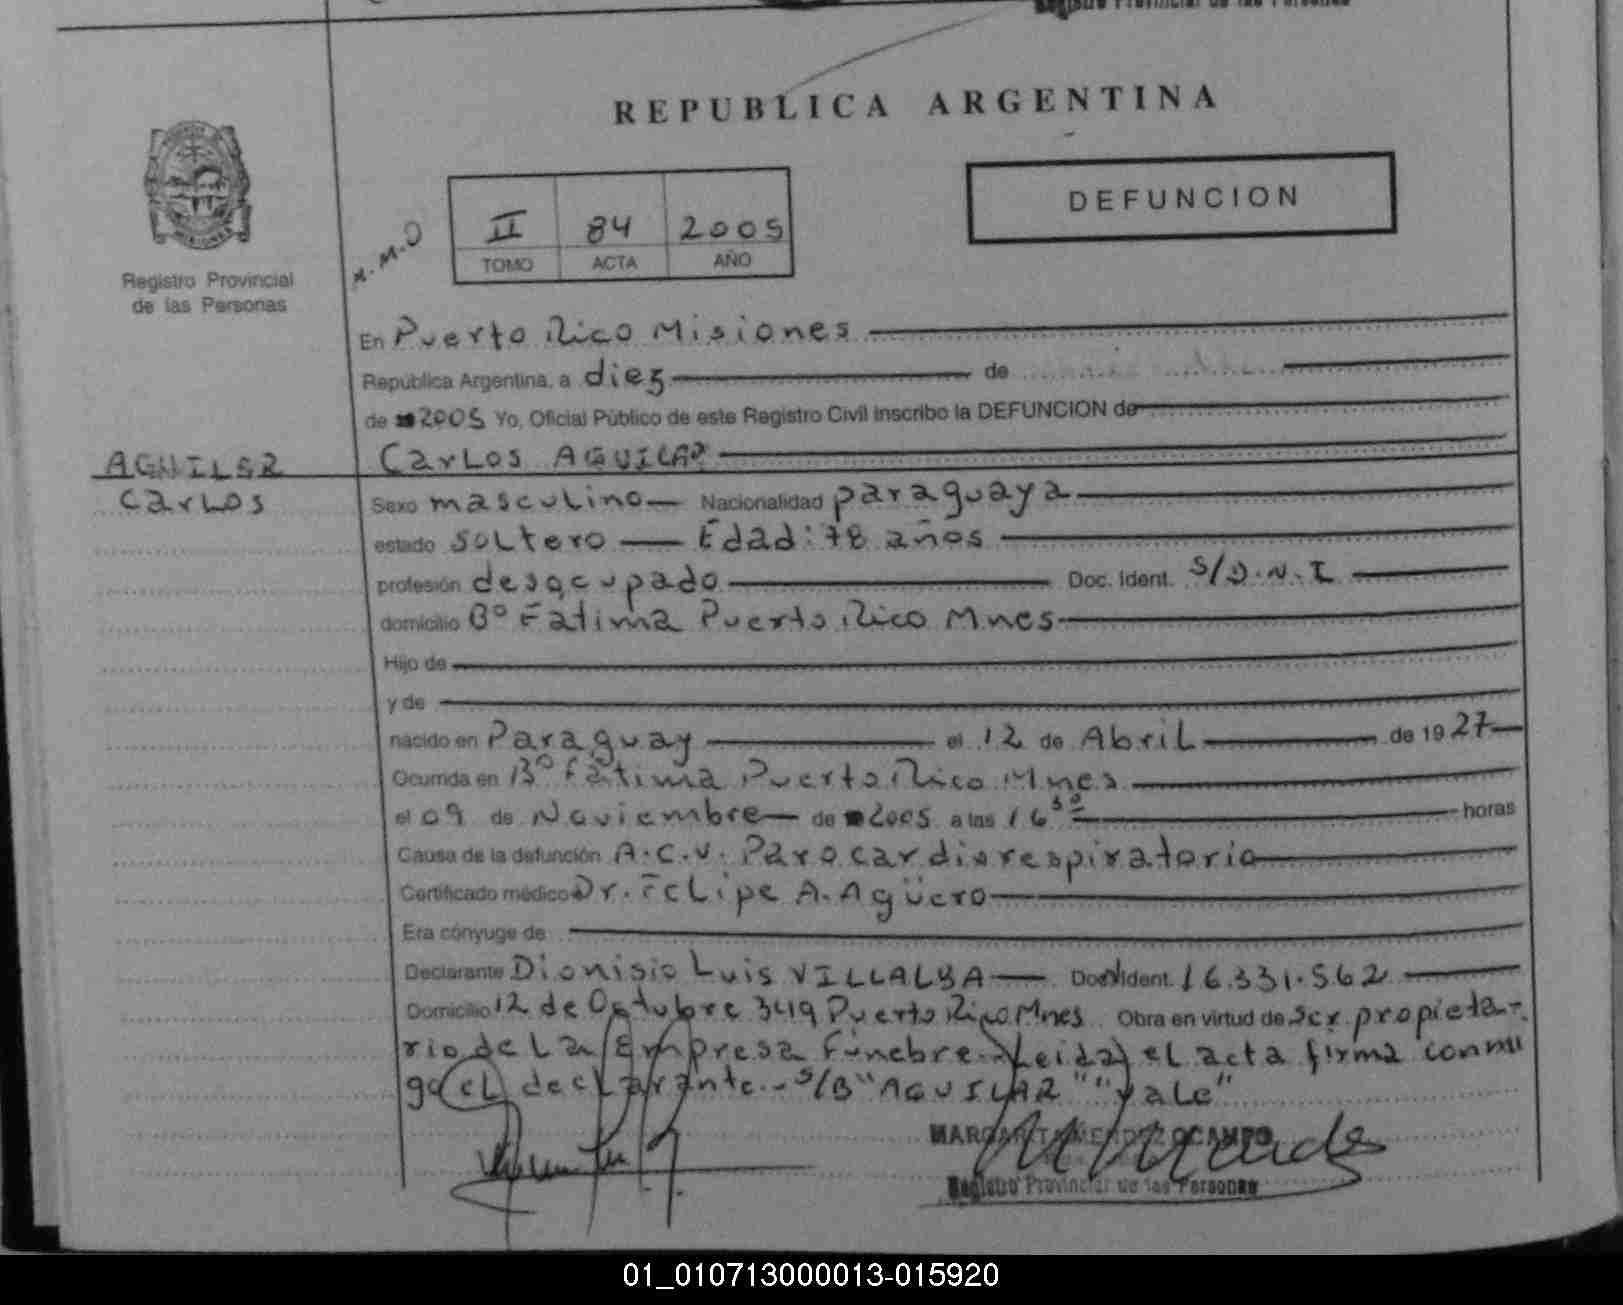 Registro Provincial de las Personas
REPUBLICA ARGENTINA
DEFUNCION
II 84 2005
TOMO ACTA AÑO
M.M.O
MISIONES
Registro Provincial
de las Personas
En Puerto Rico Misiones
República Argentina, a diez de
de 2005 Yo, Oficial Público de este Registro Civil inscribo la DEFUNCION de
AGUILAR Carlos AGUILAR
Carlos Sexo masculino Nacionalidad paraguaya
estado soltero Edad: 78 años
profesión desocupado Doc. Ident. S/D.N.I
domicilio Bº Fatima Puerto Rico Mnes
Hijo de
y de
nacido en Paraguay el 12 de Abril de 1927
Ocurrida en Bº Fátima Puerto Rico Mnes
el 09 de Noviembre de 2005 a las 16 30 horas
Causa de la defunción A.C.V. Parocardiorespiratorio
Certificado médico Dr. Felipe A. Agüero
Era cónyuge de
Declarante Dionisio Luis VILLALBA Doc. Ident. 16.331.562
Domicilio 12 de Octubre 349 Puerto Rico Mnes Obra en virtud de Ser propieta-
rio de La Empresa Fúnebre Leida el acta firma conmi
go el declarante.- S/B "AGUILAR" "vale"
MARGARITA MENDEZ OCAMPO
Registro Provincial de las Personas
01_010713000013-015920